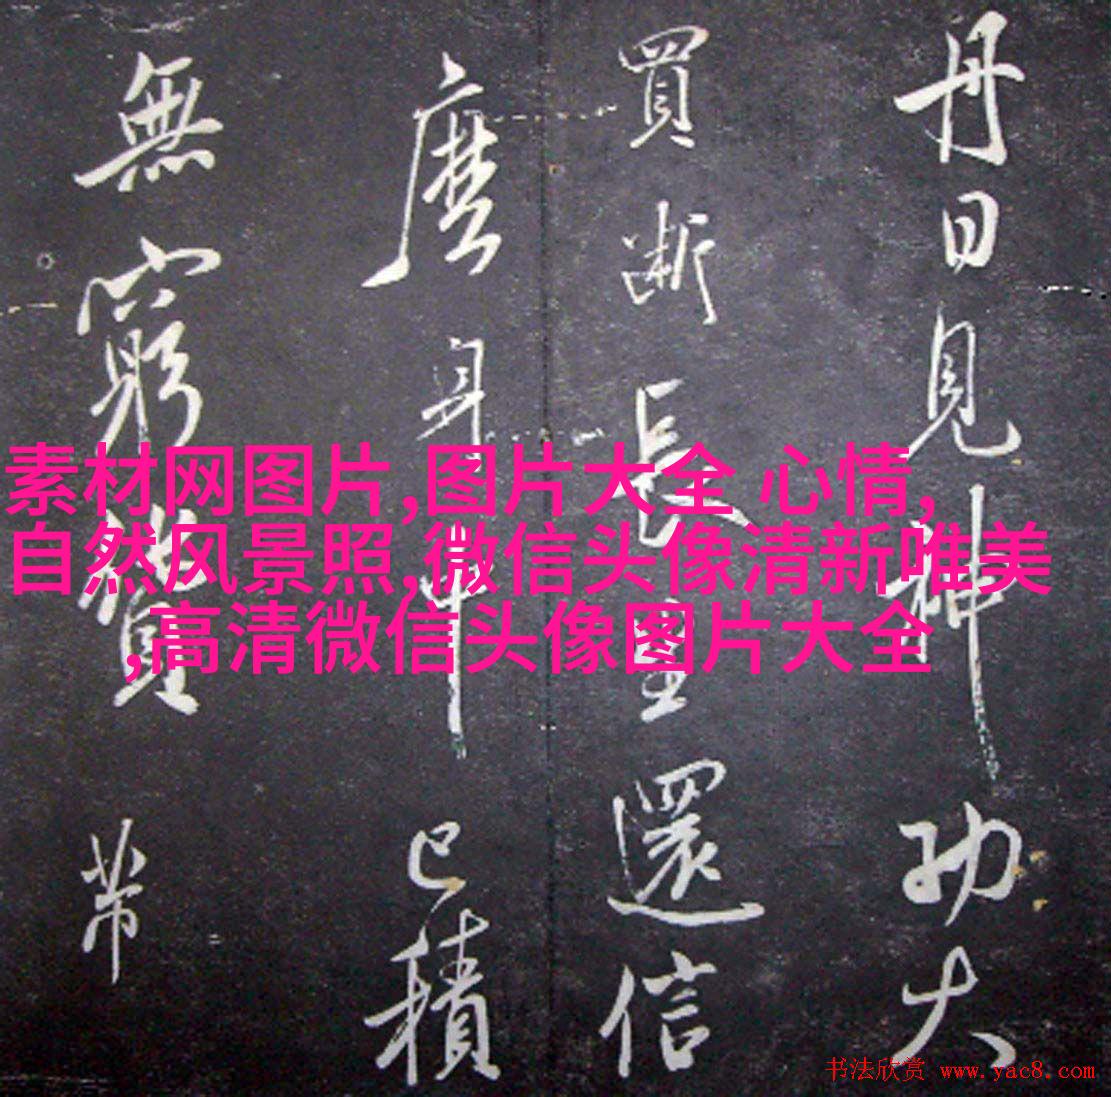 丹日見神功大
買斷長生還信
麼身中已積
無窮寶帶
素材网图片,图片大全 心情,
自然风景照,微信头像清新唯美
,高清微信头像图片大全
书法欣赏 www.yac8.com